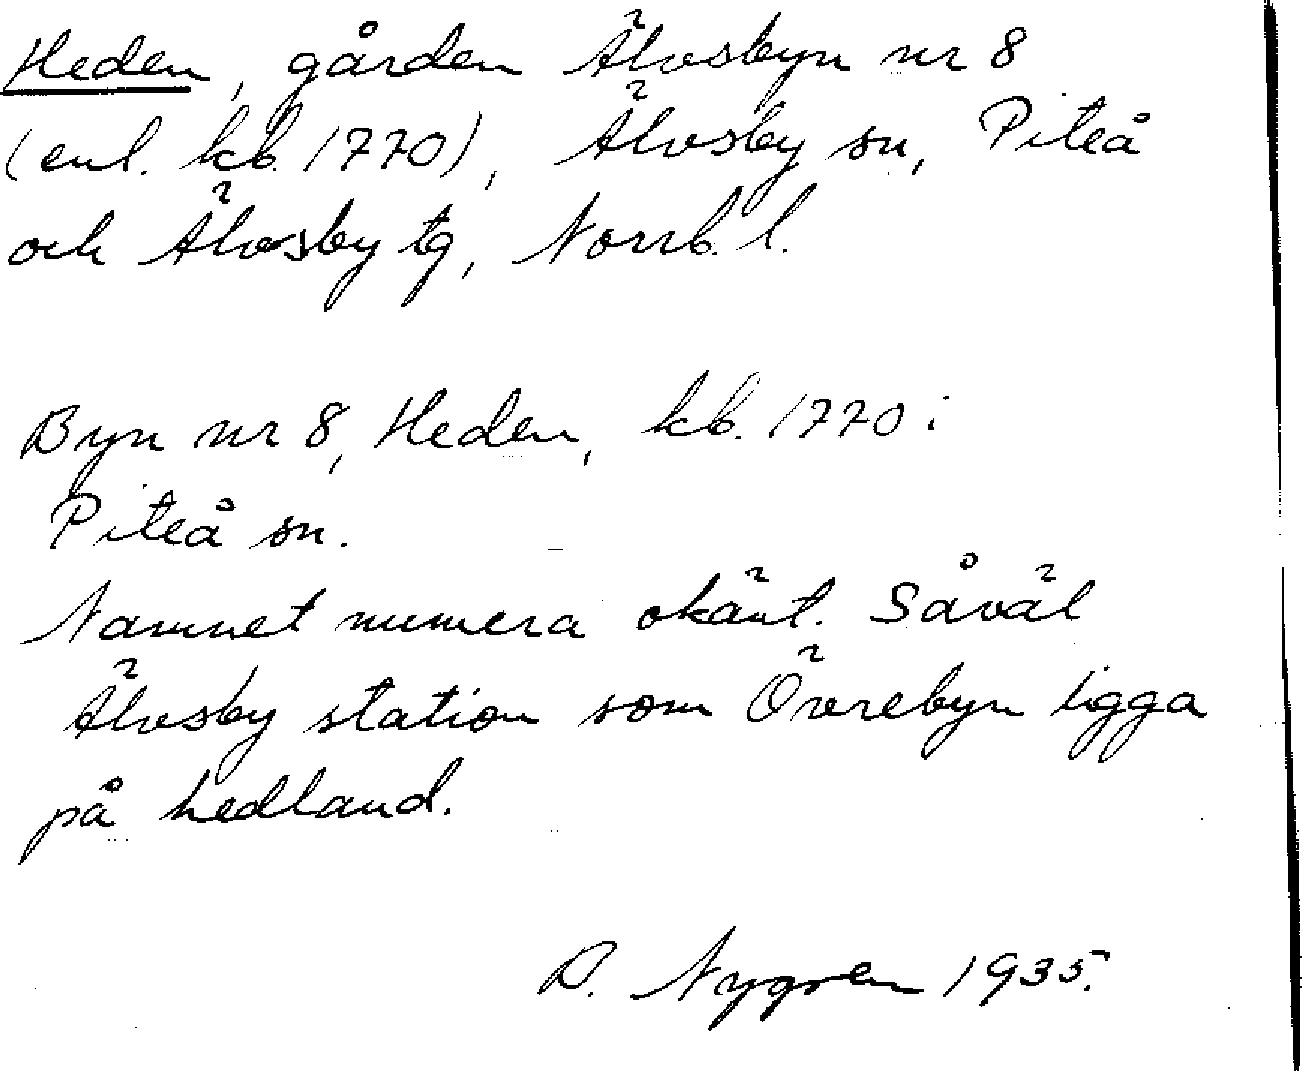 Heden, gården Älvsbyn nr 8
(enl. kb. 1770), Älvsby sn, Piteå
och Älvsby tg, Norrb. l.
Byn nr 8, Heden, kb. 1770 i
Piteå sn.
Namnet numera okänt. Såväl
Älvsby station som Överebyn ligga
på hedland.
D. Nygren 1935.